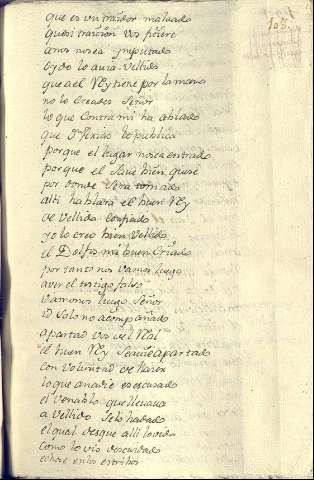 108.
que es un traidor malvado
quesi traicion vos hiziere
a nos no sea ymputado
oydo lo auia Vellido
que a el Rey tiene por la mano
no lo creades Señor
lo que contra mi ha ablado
que Dn Arias lo publica
porque el lugar no sea entrado
porque el save bien quese
por donde sera tomado
alli hablara el buen Rey
de vellido confiado
yo lo creo bien Vellido
el Dolfos mi buen Criado
por tanto nos vamos luego
a ver el postigo falso
vamonos luego Señor
id solo no acompañado
apartad vos del Real
el buen Rey seavie apartado
con voluntad de hazer
lo que a nadie es escusado
el venablo que llevava
a Vellido selo ha dado
el qual desque alli lo vido
como lo vio descuidado